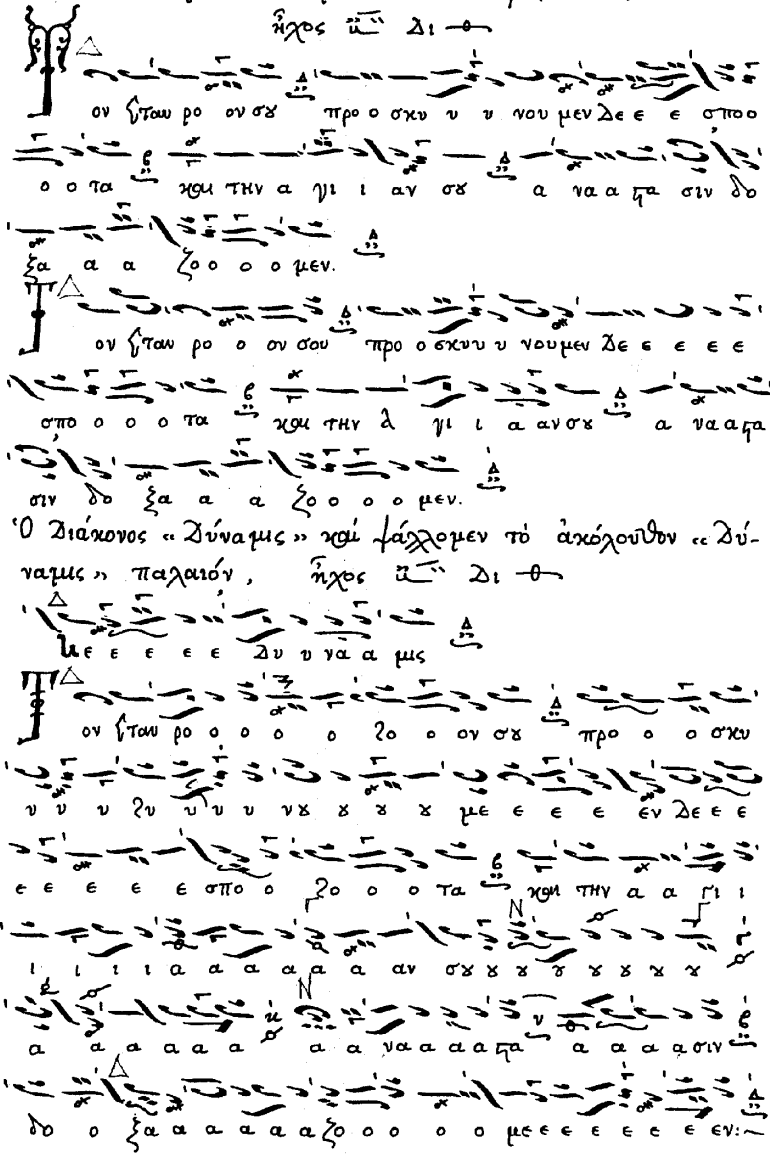 ἦχος Δι
Τον Σταυ ρο ον σȣ προ ο σκυ υ υ νου μεν Δε ε ε σποο
ο ο τα και την α γι ι αν σȣ α να α στα σιν δο
ξα α α ζο ο ο ο μεν.
Τον Σταυ ρο ο ον σου προ ο σκυυ υ νουμεν Δε ε ε ε ε
σπο ο ο ο τα και την α γι ι α αν σȣ α να α στα
σιν δο ξα α α ζο ο ο ο μεν.
Ὁ Διάκονος «Δύναμις» καί ψάλλομεν τό ἀκόλουθον «Δύ-
ναμις» παλαιόν, ἦχος Δι
ε ε ε ε ε Δυ υ να α μις
Τον Σταυ ρο ο ο ο ο ο ον σȣ προ ο ο σκυ
υ υ υ υ υ υ νȣ ȣ ȣ ȣ ȣ με ε ε ε εν Δε ε ε
ε ε ε ε ε σπο ο ο ο ο τα και την α α γι ι
ι ι ι ι α α α α α α α αν σȣ ȣ ȣ ȣ ȣ ȣ ȣ ȣ
α α α α α α α α να α α α στα α α α α σιν
δο ο ξα α α α α α ζο ο ο ο ο με ε ε ε ε ε ε ε εν:~